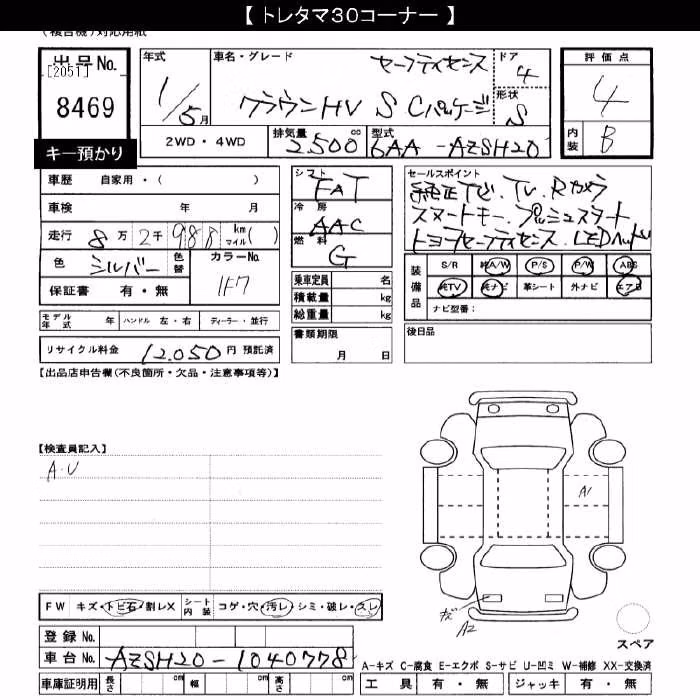 【 トレタマ30コーナー 】
(複合機)対応用紙
出品No. [2051] 8469
キー預かり
年式 1/5月
車名・グレード セーフティセンス
クラウンHV S Cパッケージ
ドア 4
形状 S
2WD・4WD 排気量 2,500 cc 型式 6AA-AZSH20
評価点 4
内装 B
車歴 自家用・( )
車検 年 月
走行 8万2千988 km マイル( )
色 シルバー 色替 カラーNo. 1F7
保証書 有・無
モデル年式 年 ハンドル 左・右 ディーラー・並行
リサイクル料金 12,050 円 預託済
シフト FAT
冷房 AAC
燃料 G
乗車定員 名
積載量 kg
総重量 kg
書類期限
月 日
セールスポイント
純正ナビ.TV.Rカメラ
スマートキー.プッシュスタート
トヨタセーフティセンス.LEDヘッド
装備品 S/R 純A/W P/S P/W ABS
純TV 純ナビ 革シート 外ナビ エアB
ナビ型番:
後日品
【出品店申告欄(不良箇所・欠品・注意事項等)】
【検査員記入】
A.U
A1
A2
FW キズ・トビ石・割レX シート内装 コゲ・穴・汚レ・シミ・破レ・スレ
登録No.
車台No. AZSH20-1040778
車庫証明用 長さ cm 幅 cm 高さ cm
スペア
A-キズ C-腐食 E-エクボ S-サビ U-凹ミ W-補修 XX-交換済
工具 有・無 ジャッキ 有・無